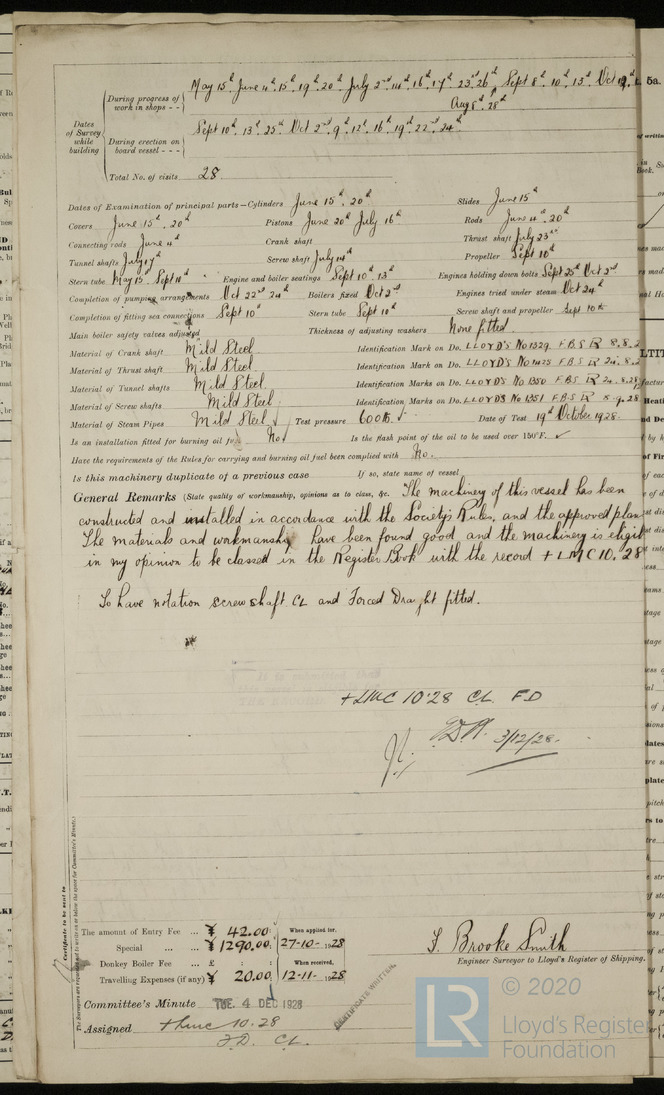 May 15th. June 4th. 15th. 19th. 20th. July 2nd. 14th. 16th. 17th. 23rd. 26th. Sept 8th. 10th. 13th. Oct 19th.
During progress of work in shops - -
Aug 8th. 28th
Dates of Survey while building
During erection on board vessel - - -
Sept 10th. 13th. 25th. Oct 2nd. 9th. 12th. 16th. 19th. 22nd. 24th.
Total No. of visits 28
Dates of Examination of principal parts—Cylinders June 15th. 20th. Slides June 15th
Covers June 15th. 20th. Pistons June 20th July 16th Rods June 4th. 20th
Connecting rods June 4th Crank shaft Thrust shaft July 23rd
Tunnel shafts July 17th Screw shaft July 14th Propeller Sept 10th
Stern tube May 15th. Sept 11th Engine and boiler seatings Sept 10th. 13th Engines holding down bolts Sept 25th Oct 2nd
Completion of pumping arrangements Oct 22nd 24th Boilers fixed Oct 2nd Engines tried under steam Oct 24th
Completion of fitting sea connections Sept 10th Stern tube Sept 10th Screw shaft and propeller Sept 10th
Main boiler safety valves adjusted Thickness of adjusting washers None fitted
Material of Crank shaft Mild Steel Identification Mark on Do. LLOYD'S No 1329 F.B.S R 8.8.2
Material of Thrust shaft Mild Steel Identification Mark on Do. LLOYD'S No 1425 F.B.S R 24.8.2
Material of Tunnel shafts Mild Steel Identification Marks on Do. LLOYD'S No 1350 F.B.S R 24.8.28
Material of Screw shafts Mild Steel Identification Marks on Do. LLOYD'S No 1351 F.B.S R 5.9.28
Material of Steam Pipes Mild Steel ✓ Test pressure 600 lb. ✓ Date of Test 19th October 1928.
Is an installation fitted for burning oil No Is the flash point of the oil to be used over 150°F. ✓
Have the requirements of the Rules for carrying and burning oil fuel been complied with No.
Is this machinery duplicate of a previous case If so, state name of vessel
General Remarks (State quality of workmanship, opinions as to class, &c. The machinery of this vessel has been
constructed and installed in accordance with the Society's Rules, and the approved plan
The materials and workmanship have been found good and the machinery is eligib
in my opinion to be classed in the Register Book with the record + LMC 10.28
To have notation screw shaft CL and Forced Draught fitted.
+LMC 10.28 CL. F.D
3/12/28.
Certificate to be sent to
The amount of Entry Fee ... ¥ 42.00 When applied for,
Special ... ... ¥ 1290.00 27-10-1928
Donkey Boiler Fee ... £ : : When received,
Travelling Expenses (if any) ¥ 20.00 12-11-1928
F. Brooke Smith
Engineer Surveyor to Lloyd's Register of Shipping.
Committee's Minute TUE. 4 DEC 1928
Assigned +Lmc 10.28
F.D. CL.
CERTIFICATE WRITTEN.
LR © 2020
Lloyd's Register
Foundation